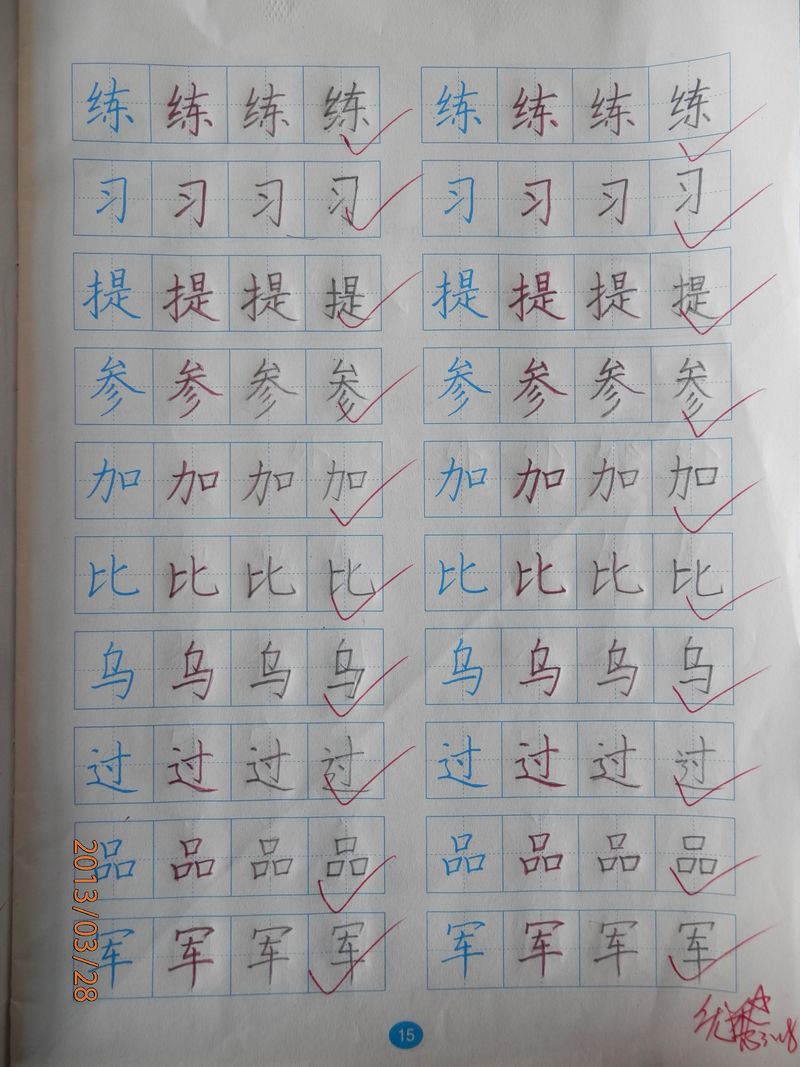 练 练 练 练 练 练 练 练
习 习 习 习 习 习 习 习
提 提 提 提 提 提 提 提
参 参 参 参 参 参 参 参
加 加 加 加 加 加 加 加
比 比 比 比 比 比 比 比
乌 乌 乌 乌 乌 乌 乌 乌
过 过 过 过 过 过 过 过
品 品 品 品 品 品 品 品
军 军 军 军 军 军 军 军
2013/03/28
15
优